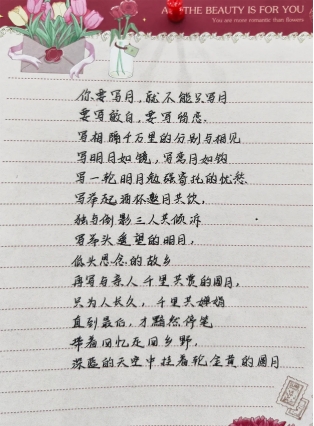 ALL THE BEAUTY IS FOR YOU
You are more romantic than flowers
你要写月,就不能只写月
要写皎白,要写相思
写相隔千万里的分别与相见
写明月如镜,写弯月如钩
写一轮明月勉强寄托的忧愁
写举起酒杯邀月共饮,
独与倒影三人共倾诉
写举头遥望的明月,
低头思念的故乡
再写与亲人千里共赏的圆月,
只为人长久,千里共婵娟
直到最后,才黯然停笔
带着回忆返回乡野,
深蓝的天空中挂着轮金黄的圆月